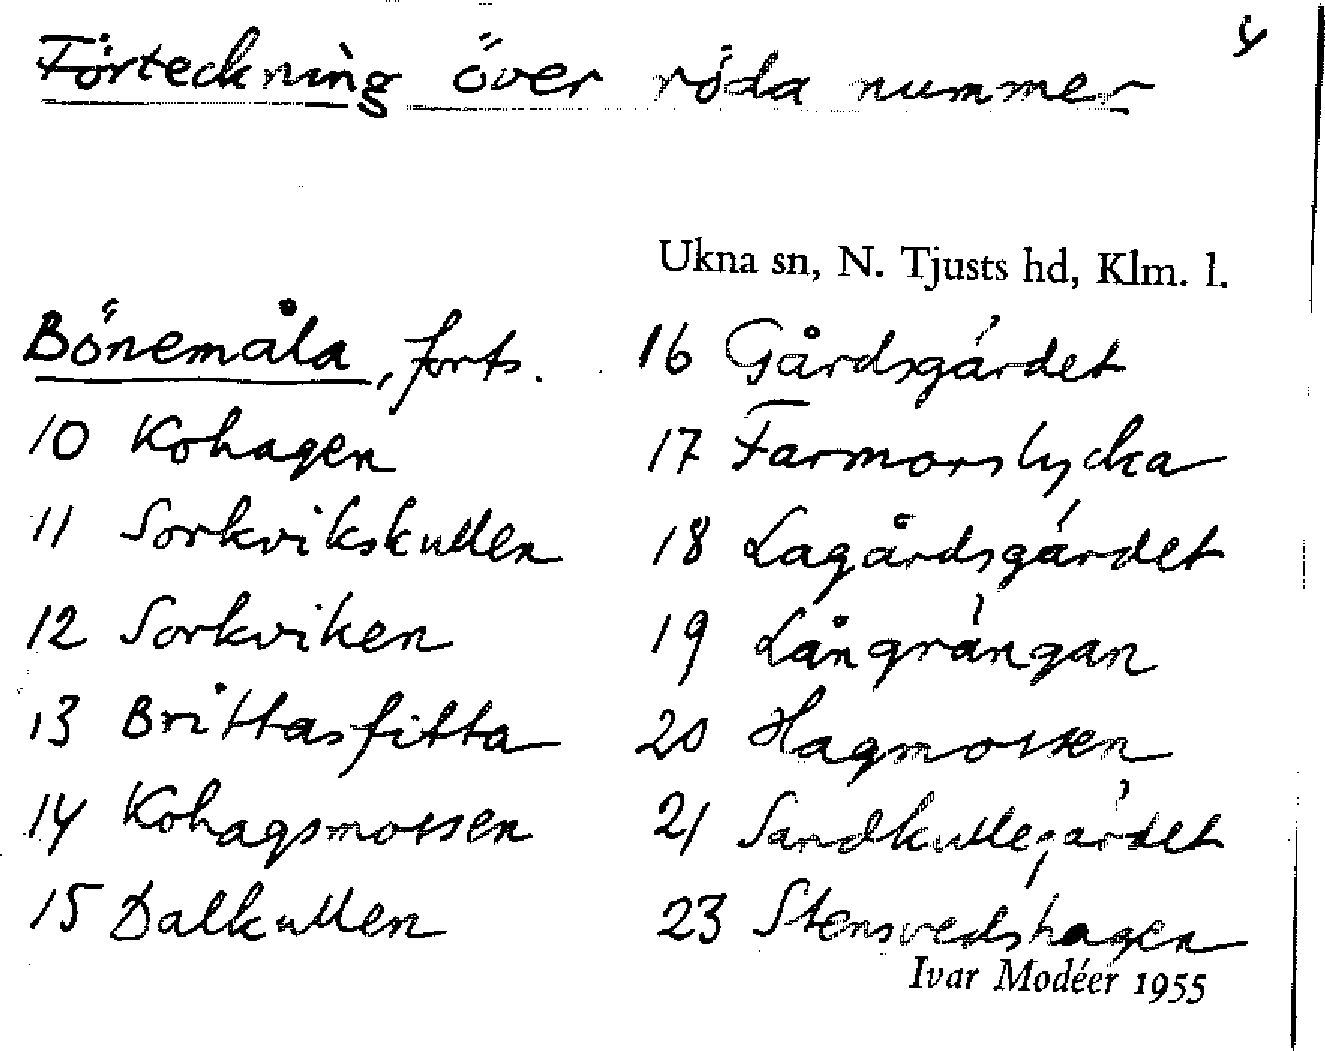 4
Förteckning över röda nummer
Ukna sn, N. Tjusts hd, Klm. l.
Bönemåla, forts.
10 Kohagen
11 Sorkvikskullen
12 Sorkviken
13 Brittasfitta
14 Kohagsmossen
15 Dalkullen
16 Gårdsgärdet
17 Farmorslycka
18 Lagårdsgärdet
19 Långrängan
20 Hagmossen
21 Sandkullegärdet
23 Stensvedshagen
Ivar Modéer 1955